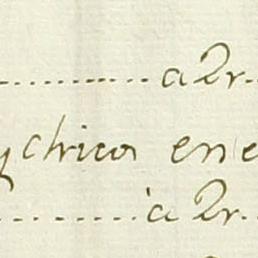 ........... a 2r.
y chica en e
........... a 2r.